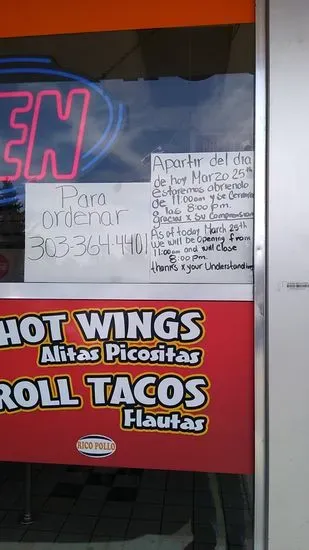 EN
Para
ordenar
303-364-4401
Apartir del dia
de hoy Marzo 25th
estaremos abriendo
de 11:00am y se cerrara
a las 8:00 pm.
gracias x su compromiso
As of today March 25th
we will be opening from
11:00am and will close
8:00 p.m.
thanks x your Understanding
HOT WINGS
Alitas Picositas
ROLL TACOS
Flautas
RICO POLLO